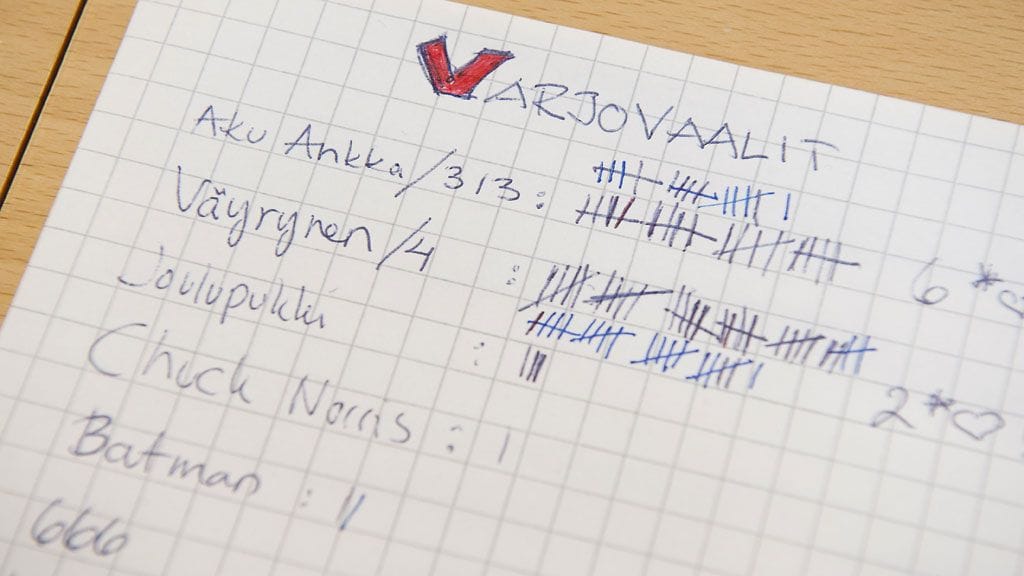 VARJOVAALIT
Aku Ankka/313:
Väyrynen/4 :
Joulupukki :
Chuck Norris : I
Batman : II
666
6 *♡
2 *♡